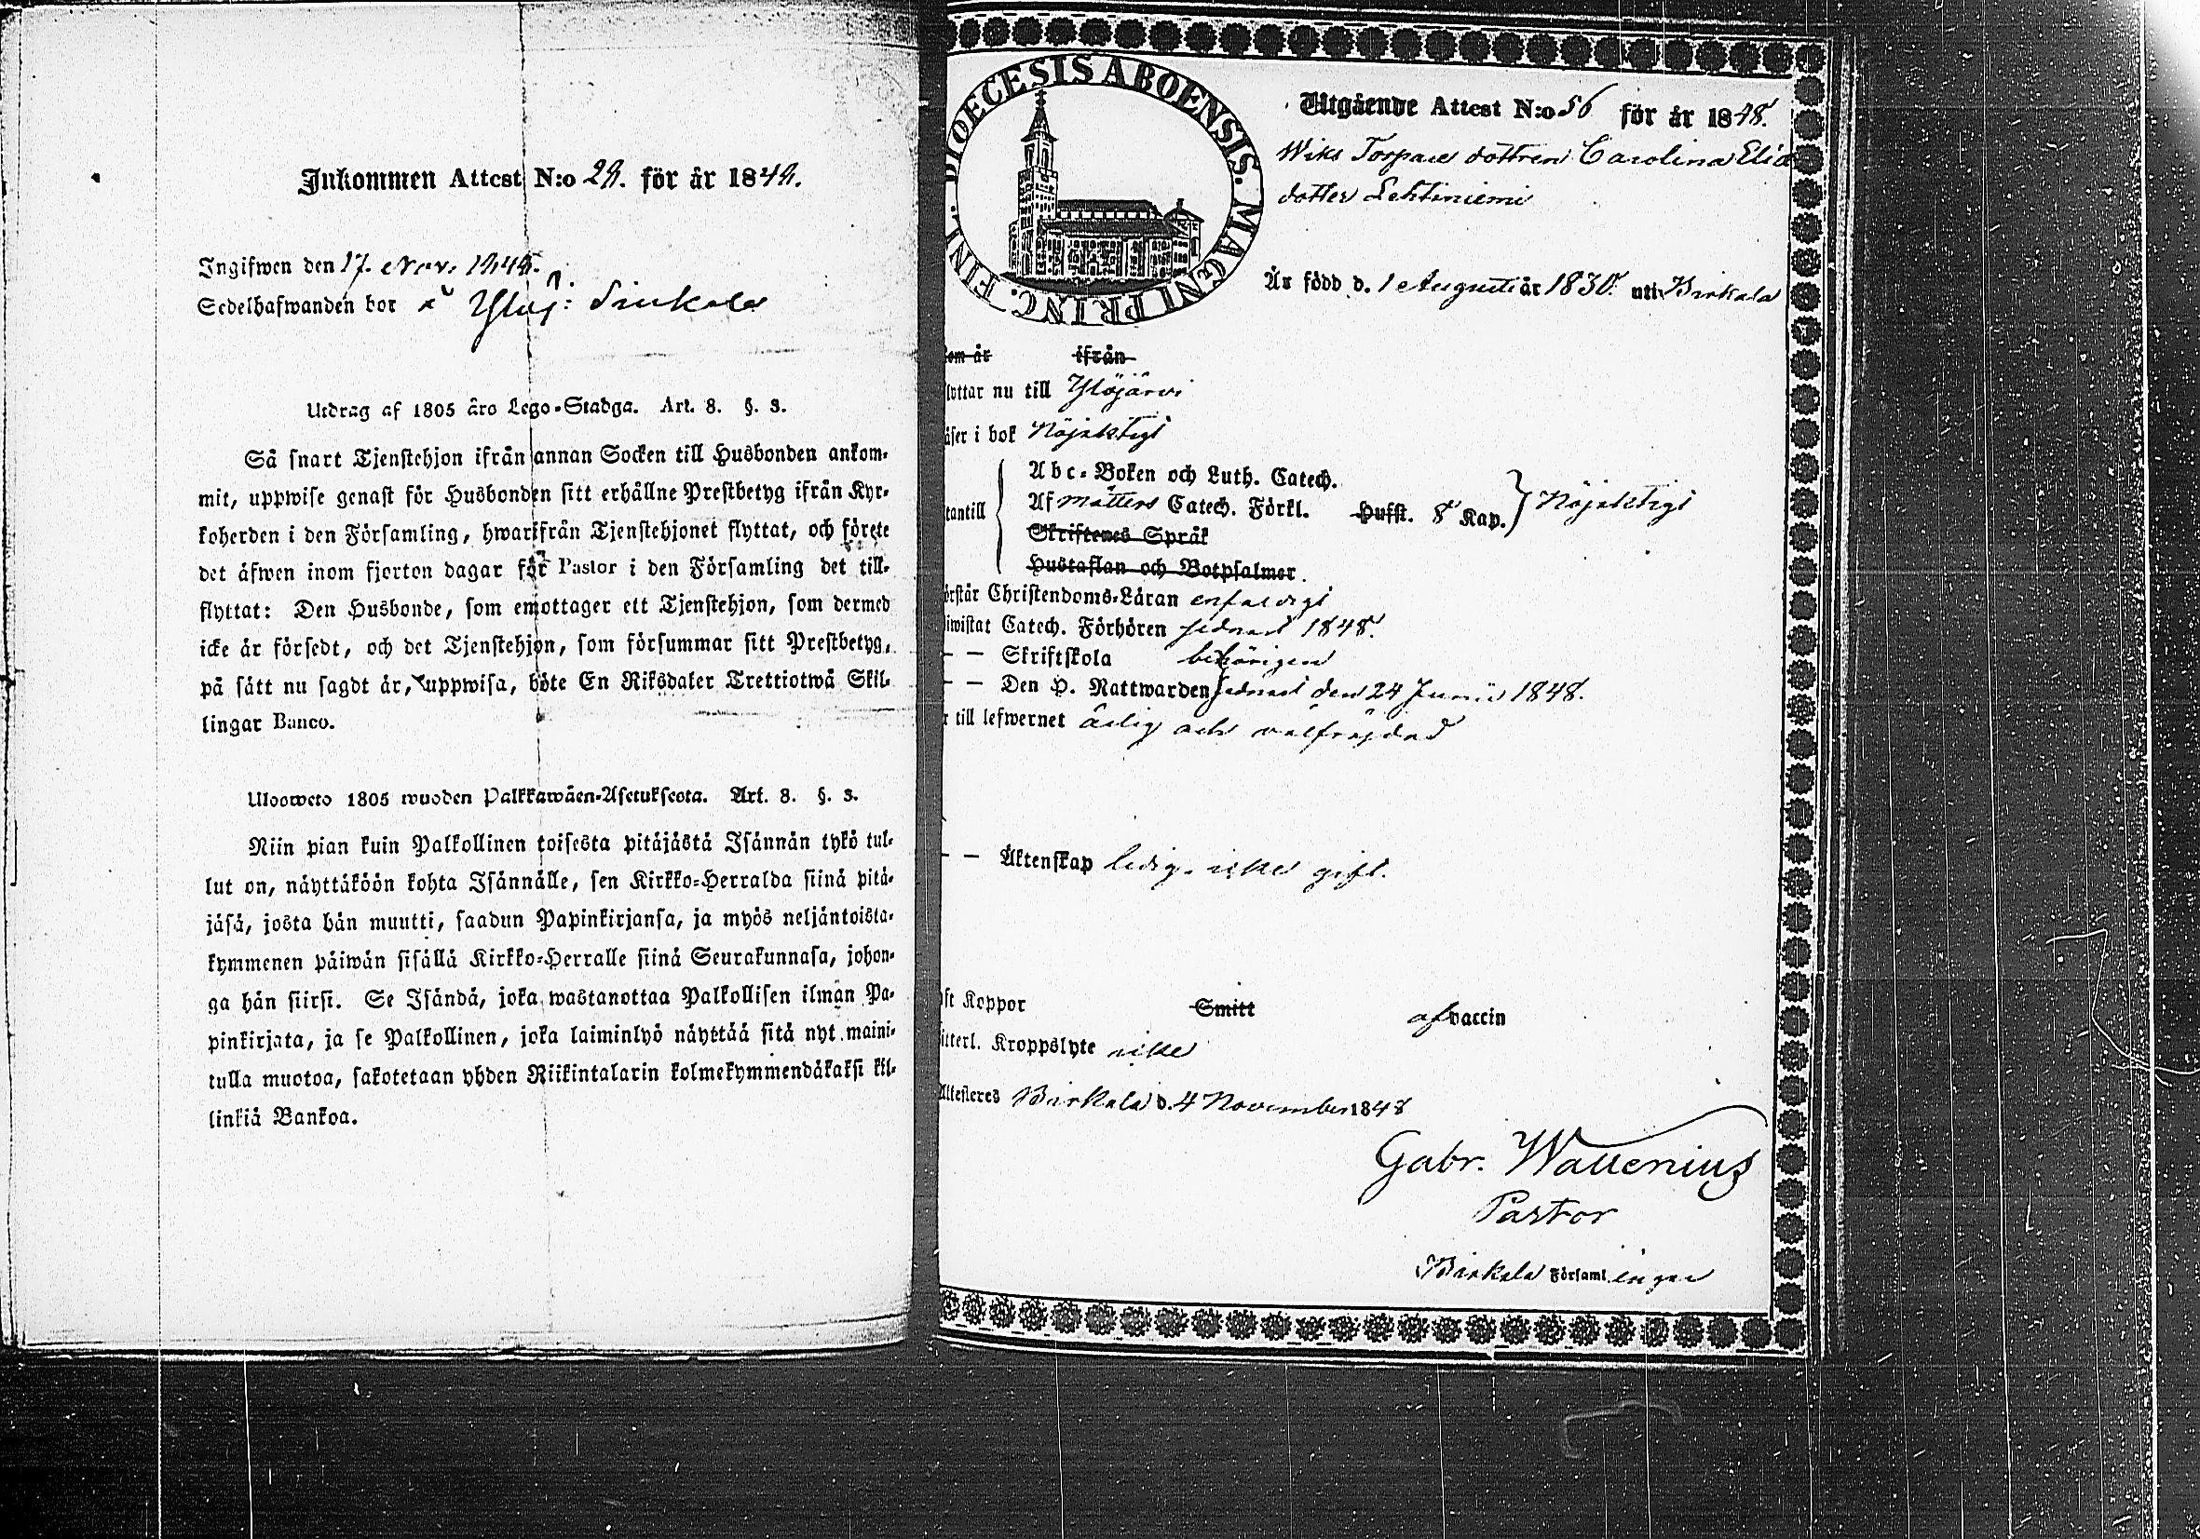 Inkommen Attest N:o 29. för år 1849.
Ingifwen den 17. Nov. 1848.
Sedelhafwanden bor å Ylöj: Siukola
Utdrag af 1805 års Lego-Stadga. Art. 8. §. 3.
Så snart Tjenstehjon ifrån annan Socken till Husbonden ankom-
mit, uppwise genast för Husbonden sitt erhållne Prestbetyg ifrån Kyr-
koherden i den Församling, hwarifrån Tjenstehjonet flyttat, och förete
det åfwen inom fjorton dagar för Pastor i den Församling det till-
flyttat: Den Husbonde, som emottager ett Tjenstehjon, som dermed
icke är försedt, och det Tjenstehjon, som försummar sitt Prestbetyg,
på sätt nu sagdt är, uppwisa, böte En Riksdaler Trettiotwå Skil-
lingar Banco.
Uloswets 1805 wuoden Palkkawäen-Asetuksesta. Art. 8. §. 3.
Niin pian kuin Palkollinen toisesta pitäjästä Isännän tykö tul-
lut on, näyttäköön kohta Isännälle, sen Kirkko-Herralda siinä pitä-
jäsä, josta hän muutti, saadun Papinkirjansa, ja myös neljäntoista-
kymmenen päiwän sisällä Kirkko-Herralle siinä Seurakunnasa, johon-
ga hän siirsi. Se Isändä, joka wastanottaa Palkollisen ilman Pa-
pinkirjata, ja se Palkollinen, joka laiminlyö näyttää sitä nyt maini-
tulla muotoa, sakotetaan yhden Riikintalarin kolmekymmendäkaksi kil-
linkiä Bankoa.
DIOECESIS ABOENSIS. MAGNI PRINC. FINL.
Utgående Attest N:o 56 för år 1848.
Wiks Torpare dottren Carolina Elia
dotter Lehtiniemi
Är född d. 1 Augusti år 1830. uti Birkala
kom år ifrån
flyttar nu till Ylöjärvi
läser i bok Nöjaktigt
utantill
Abc-Boken och Luth. Catech.
Af Mätters Catech. Förkl. Hufst. 8 Kap. Nöjaktigt
Skriftenes Språk
Hustaflan och Botpsalmer.
örstår Christendoms-Läran enfaldigt
iwistat Catech. Förhören sednast 1848.
— — Skriftskola behörigen
— — Den H. Nattwarden sednast den 24 Junii 1848.
r till lefwernet ärlig och välfräjdad
— — Äktenskap ledig. icke gift.
ft Koppor Smitt af vaccin
itterl. Kroppslyte icke
Attesteres Birkala d. 4 November 1848
Gabr. Wallenius
Pastor
Birkala Församl.ingar